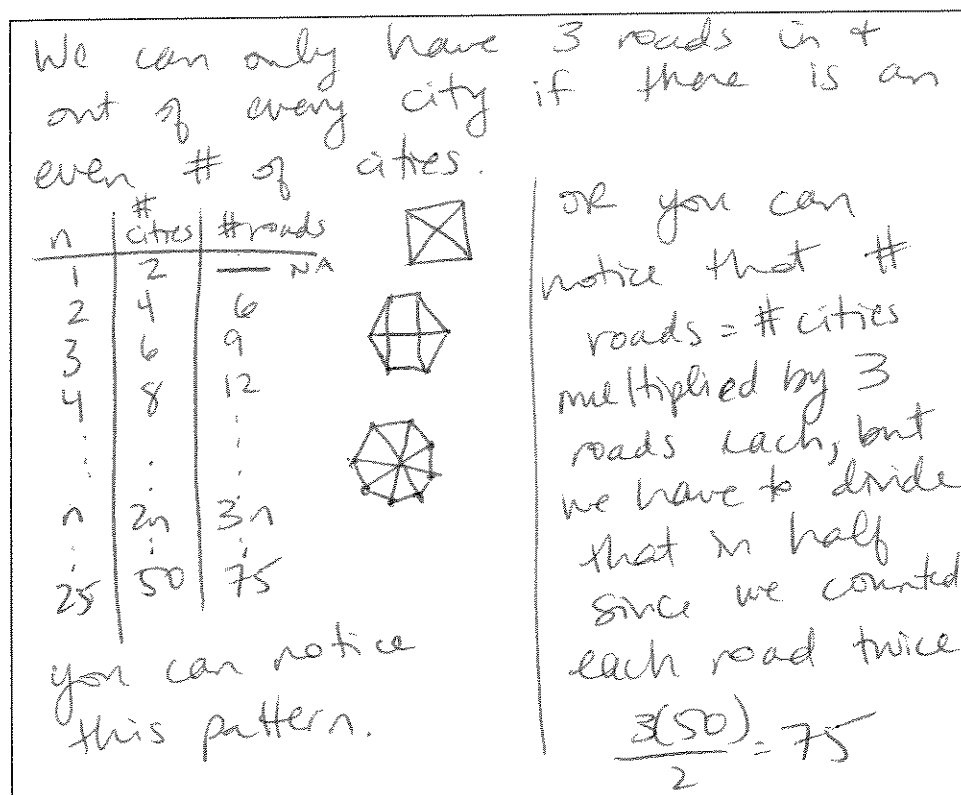 We can only have 3 roads in +
out of every city if there is an
even # of cities.
n # cities # roads
1 2 — NA
2 4 6
3 6 9
4 8 12
⋮ ⋮ ⋮
n 2n 3n
⋮ ⋮ ⋮
25 50 75
you can notice
this pattern.
OR you can
notice that #
roads = # cities
multiplied by 3
roads each, but
we have to divide
that in half
since we counted
each road twice
3(50)/2 = 75